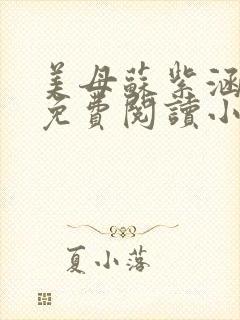 美母蘇紫涵
免費閱讀小
夏小落